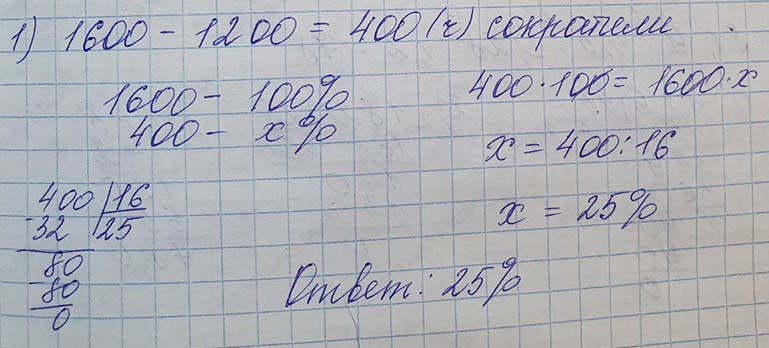 1) 1600 - 1200 = 400 (г) сократили
1600 - 100%
400 - x%
400 · 100 = 1600 · x
x = 400 : 16
x = 25%
400 | 16
-32 | 25
80
-80
0
Ответ: 25%